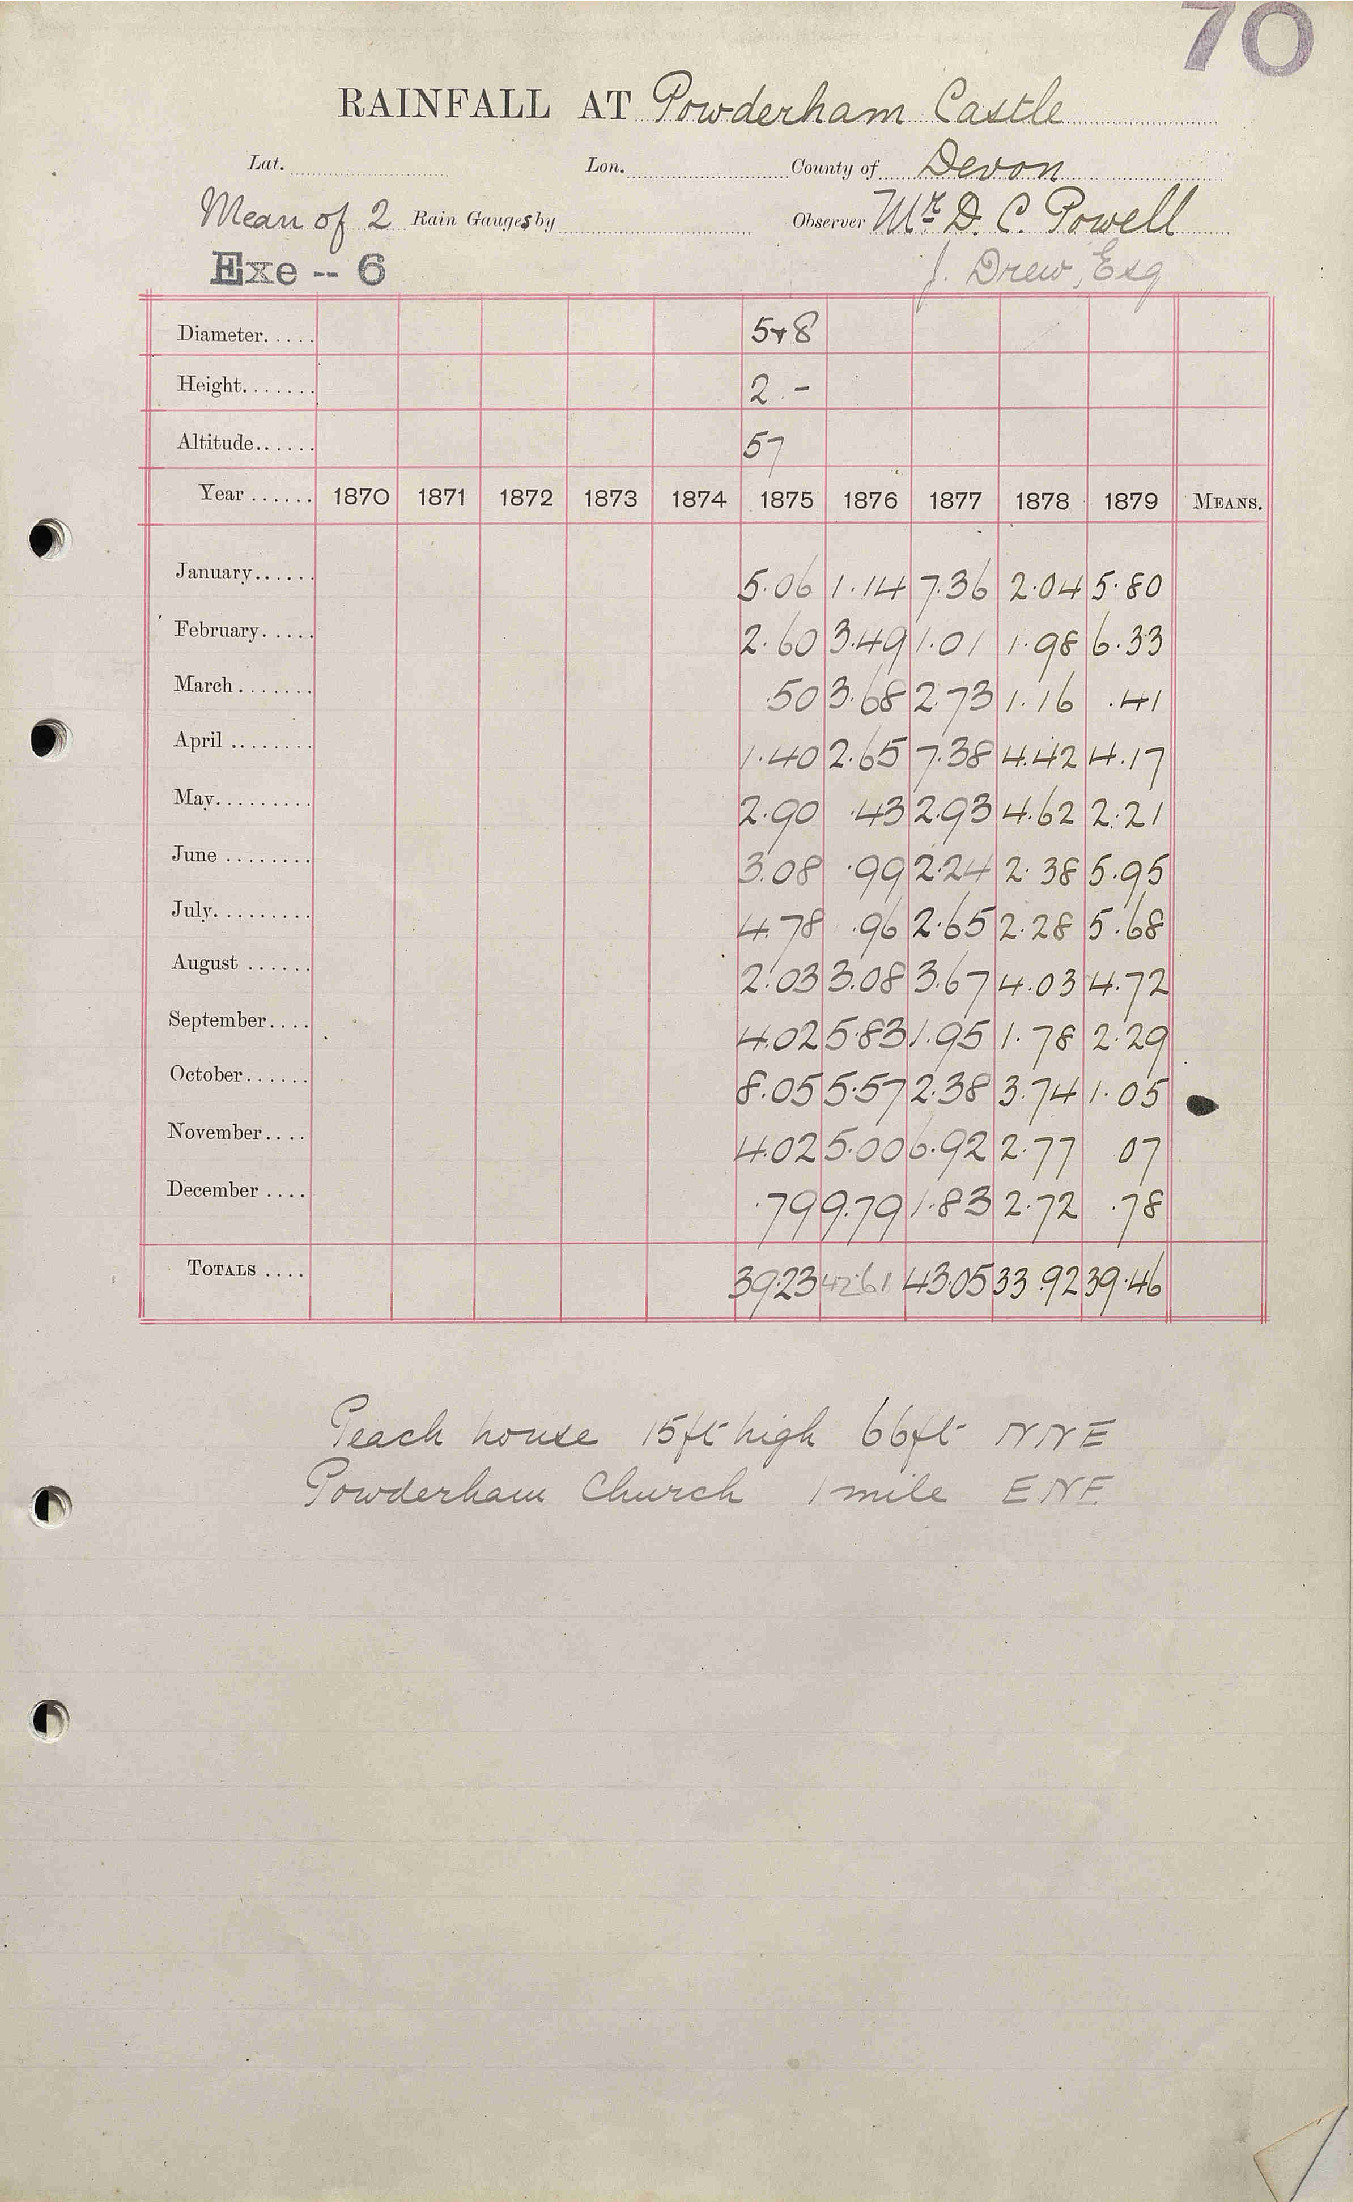 70
RAINFALL AT Powderham Castle
Lat. Lon. County of Devon
Mean of 2 Rain Gauges by Observer Mr. D. C. Powell
Exe -- 6 J. Drew, Esq
Diameter..... 5+8
Height....... 2 -
Altitude...... 57
Year ...... 1870 1871 1872 1873 1874 1875 1876 1877 1878 1879 MEANS.
January...... 5.06 1.14 7.36 2.04 5.80
February..... 2.60 3.49 1.01 1.98 6.33
March ....... .50 3.68 2.73 1.16 .41
April ........ 1.40 2.65 7.38 4.42 4.17
May......... 2.90 .43 2.93 4.62 2.21
June ........ 3.08 .99 2.24 2.38 5.95
July......... 4.78 .96 2.65 2.28 5.68
August ...... 2.03 3.08 3.67 4.03 4.72
September.... 4.02 5.83 1.95 1.78 2.29
October...... 8.05 5.57 2.38 3.74 1.05
November.... 4.02 5.00 6.92 2.77 07
December .... .79 9.79 1.83 2.72 .78
TOTALS .... 39.23 42.61 43.05 33.92 39.46
Peach house 15ft high 66ft NNE
Powderham Church 1 mile ENE